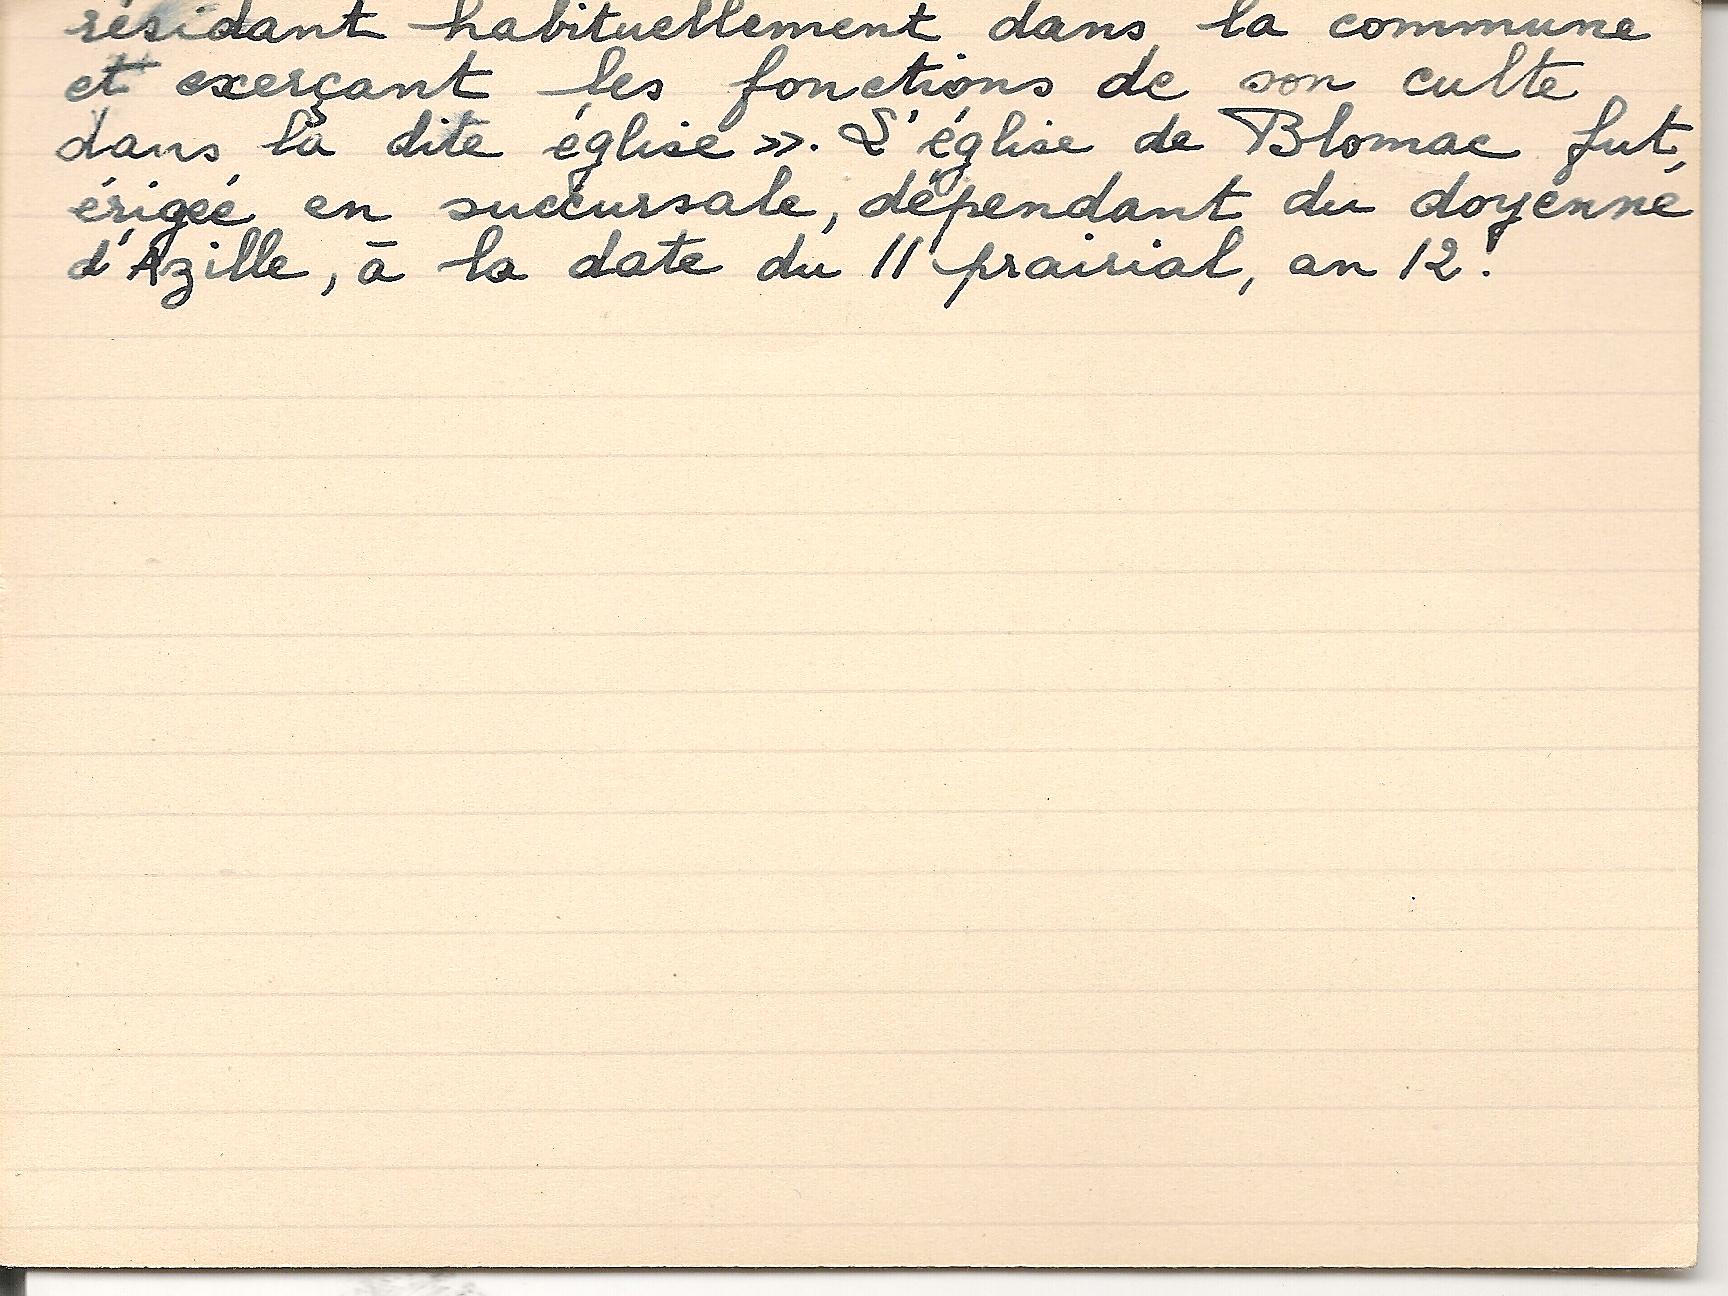 résidant habituellement dans la commune
et exerçant les fonctions de son culte
dans la dite église ». L'église de Blomac fut,
érigée en succursale, dépendant du doyenné
d'Azille, à la date du 11 prairial, an 12.